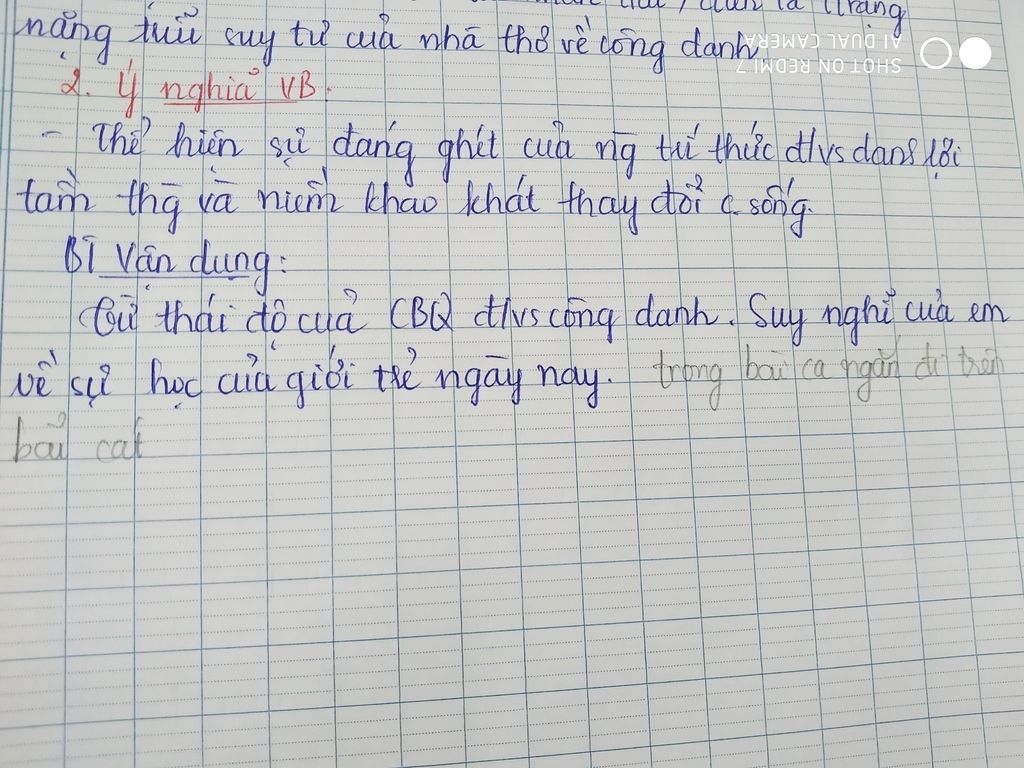 trạng
nặng trĩu suy tư của nhà thơ về công danh
SHOT ON REDMI 7
AI DUAL CAMERA
2. Ý nghĩa VB.
- Thể hiện sự đáng ghét của ng trí thức đ/vs danh lợi
tầm thg và niềm khao khát thay đổi c. sống.
BT Vận dụng:
Từ thái độ của CBQ đ/vs công danh. Suy nghĩ của em
về sự học của giới trẻ ngày nay. trong bài ca ngắn đi trên
bãi cát